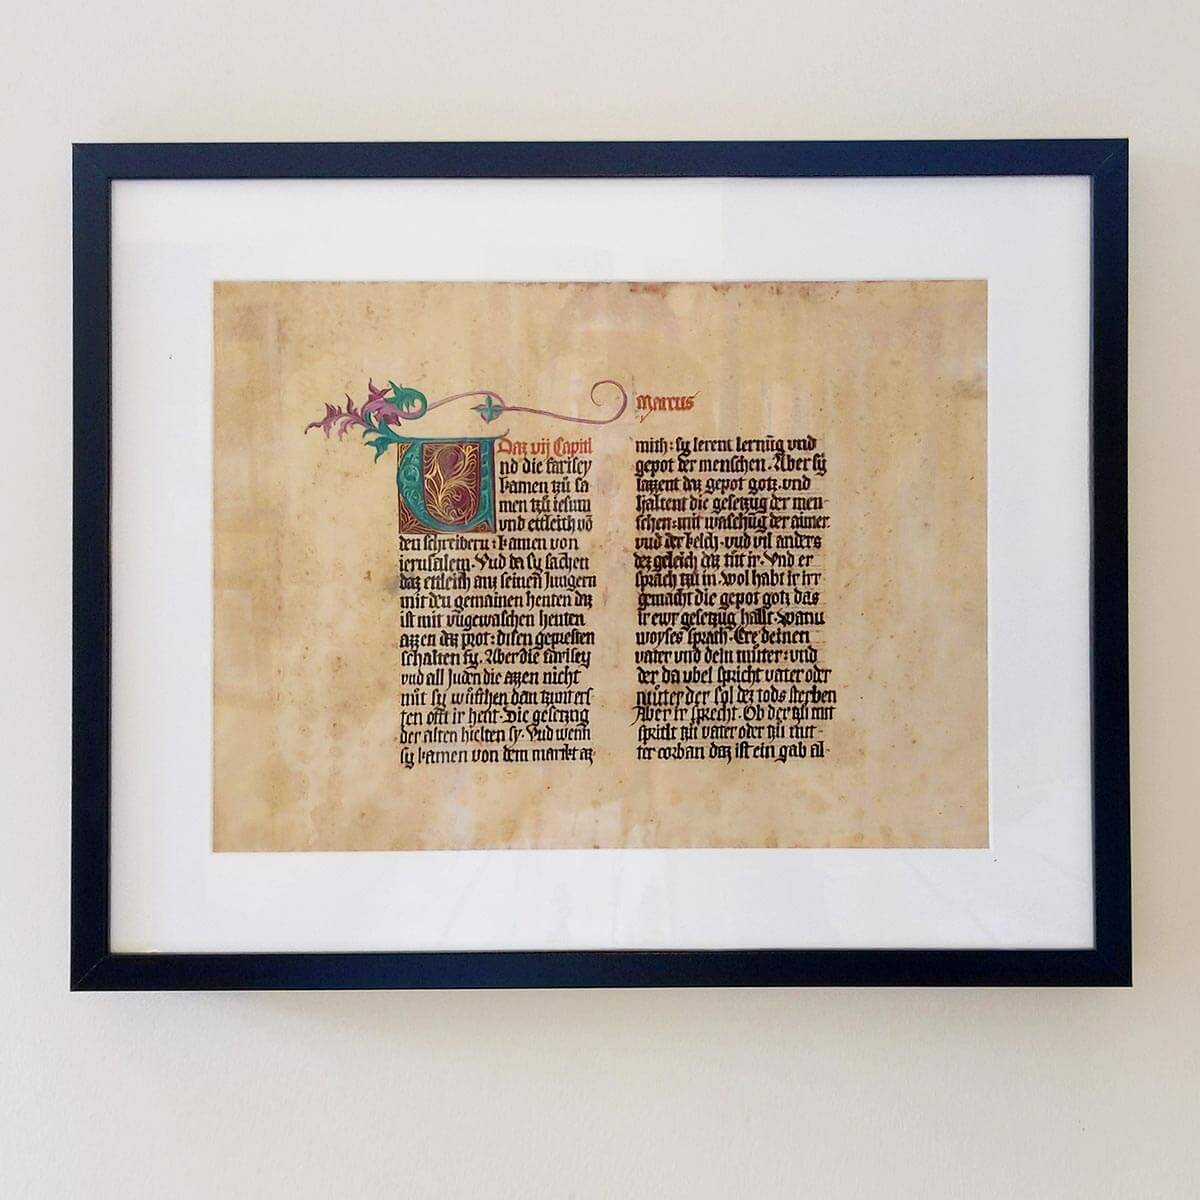 Marcus
Daz vij Capitl
nd die farisey
kamen tzů sa
men tzů iesum
vnd ettleich võ
den schreibern : kamen von
ierusalem · Vnd da sy sachen
daz ettleich auz seinen Jungern
mit den gemainen henten daz
ist mit vngewaschen henten
azzen daz prot : disen gepresten
schalten sy · Aber die farisey
vnd all Juden die azzen nicht
nůt sy wůschen dan tzwnt ers
ten oft ir hent · Die gesetzug
der alten hielten sy · Vnd wenn
sy kamen von dem markt az
mith : sy lerent lernũg vnd
gepot der menschen · Aber sÿ
lazzent daz gepot gotz · vnd
haltent die gesetzug der men-
schen : mit waschũg der aimer
vnd der kelch · vnd vil anders
dez geleich daz tůt ir · Vnd er
sprach tzů in · wol habt ir irr
gemacht die gepot gotz das
ir ewr gesetzug halst · Wann
woyses sprach · Ere deinen
vater vnd dein můter : vnd
der da vbel spricht vater oder
můter der sol dez tods sterben
Aber ir sprecht · Ob der tzů mit
spricht tzů vater oder tzů mů-
ter corban daz ist ein gab al-